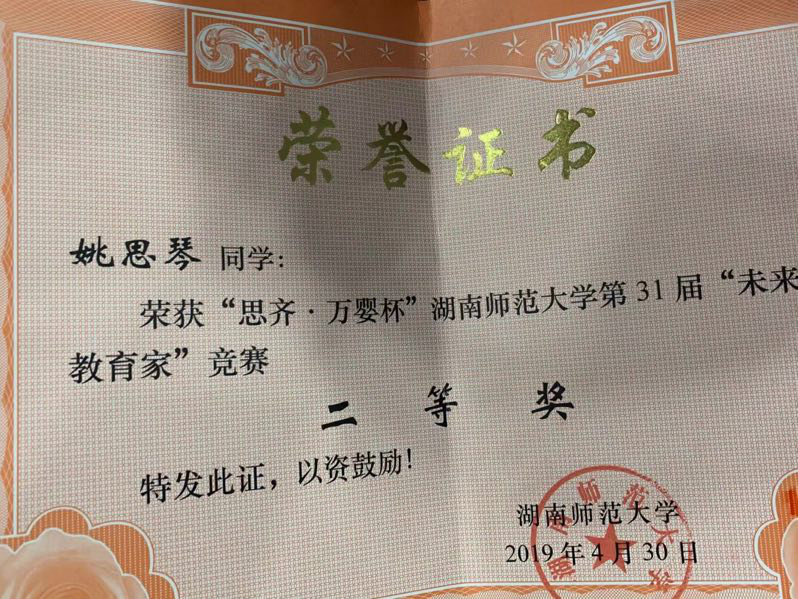 荣誉证书
姚思琴 同学：
荣获“思齐·万婴杯”湖南师范大学第31届“未来
教育家”竞赛
二等奖
特发此证，以资鼓励！
湖南师范大学
2019年4月30日
湖南师范大学